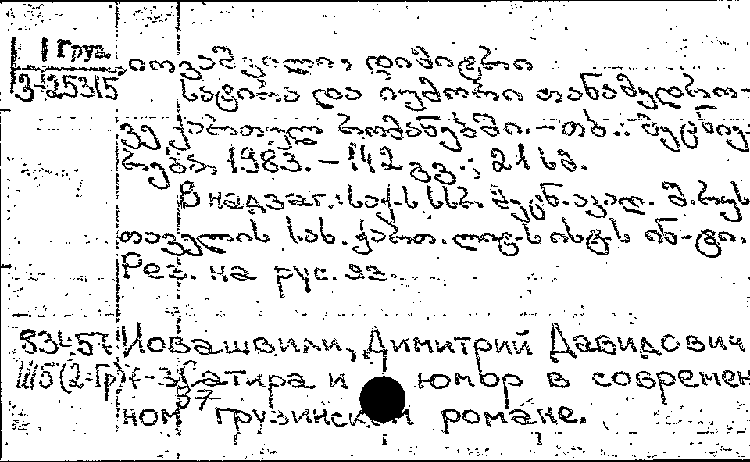 Груз.
3-25315
იოვაშვილი, დიმიტრი
სატირა და იუმორი თანამედრო-
ვე ქართულ რომანებში. – თბ.: მეცნიე-
რება, 1983. – 142 გვ.; 21 სმ.
В надзаг.: საქ. სსრ. მეცნ. აკად. შ. რუს-
თაველის სახ. ქართ. ლიტ-ს ისტ-ს ინ-ტი.
Рез. на рус. яз.
Иовашвили, Димитрий Давидович
Ш5(2=Гр) Сатира и юмор в современ
37
ном грузинском романе.